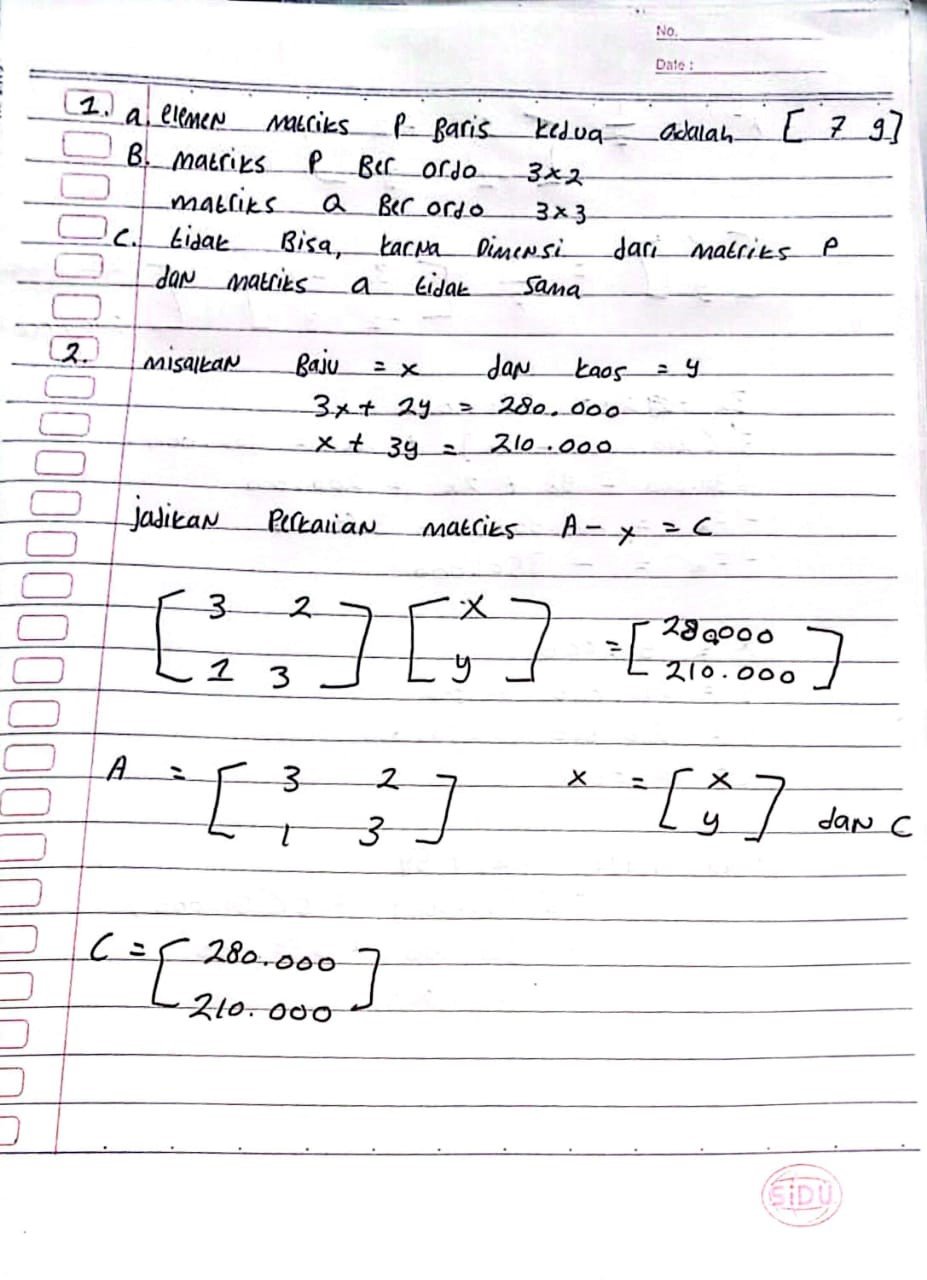 No.
Date :
1. a. elemen matriks P Baris kedua adalah [ 7 9 ]
B. matriks P Ber ordo 3x2
matriks a Ber ordo 3x3
C. tidak Bisa, karna Dimensi dari matriks P
dan matriks a tidak sama
2. misalkan Baju = x dan kaos = y
3x + 2y = 280.000
x + 3y = 210.000
jadikan Perkalian matriks A - x = C
[ 3 2 ] [ x ] = [ 280000 ]
[ 1 3 ] [ y ] [ 210.000 ]
A = [ 3 2 ] x = [ x ]
[ 1 3 ] [ y ] dan C
C = [ 280.000 ]
[ 210.000 ]
SiDU